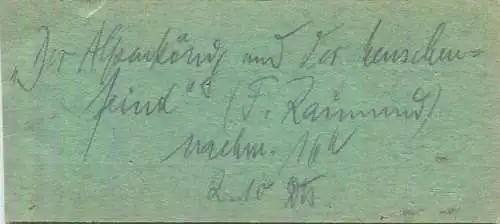 „Der Alpenkönig und der Menschen=
feind“ (F. Raimund)
nachm.
2.10